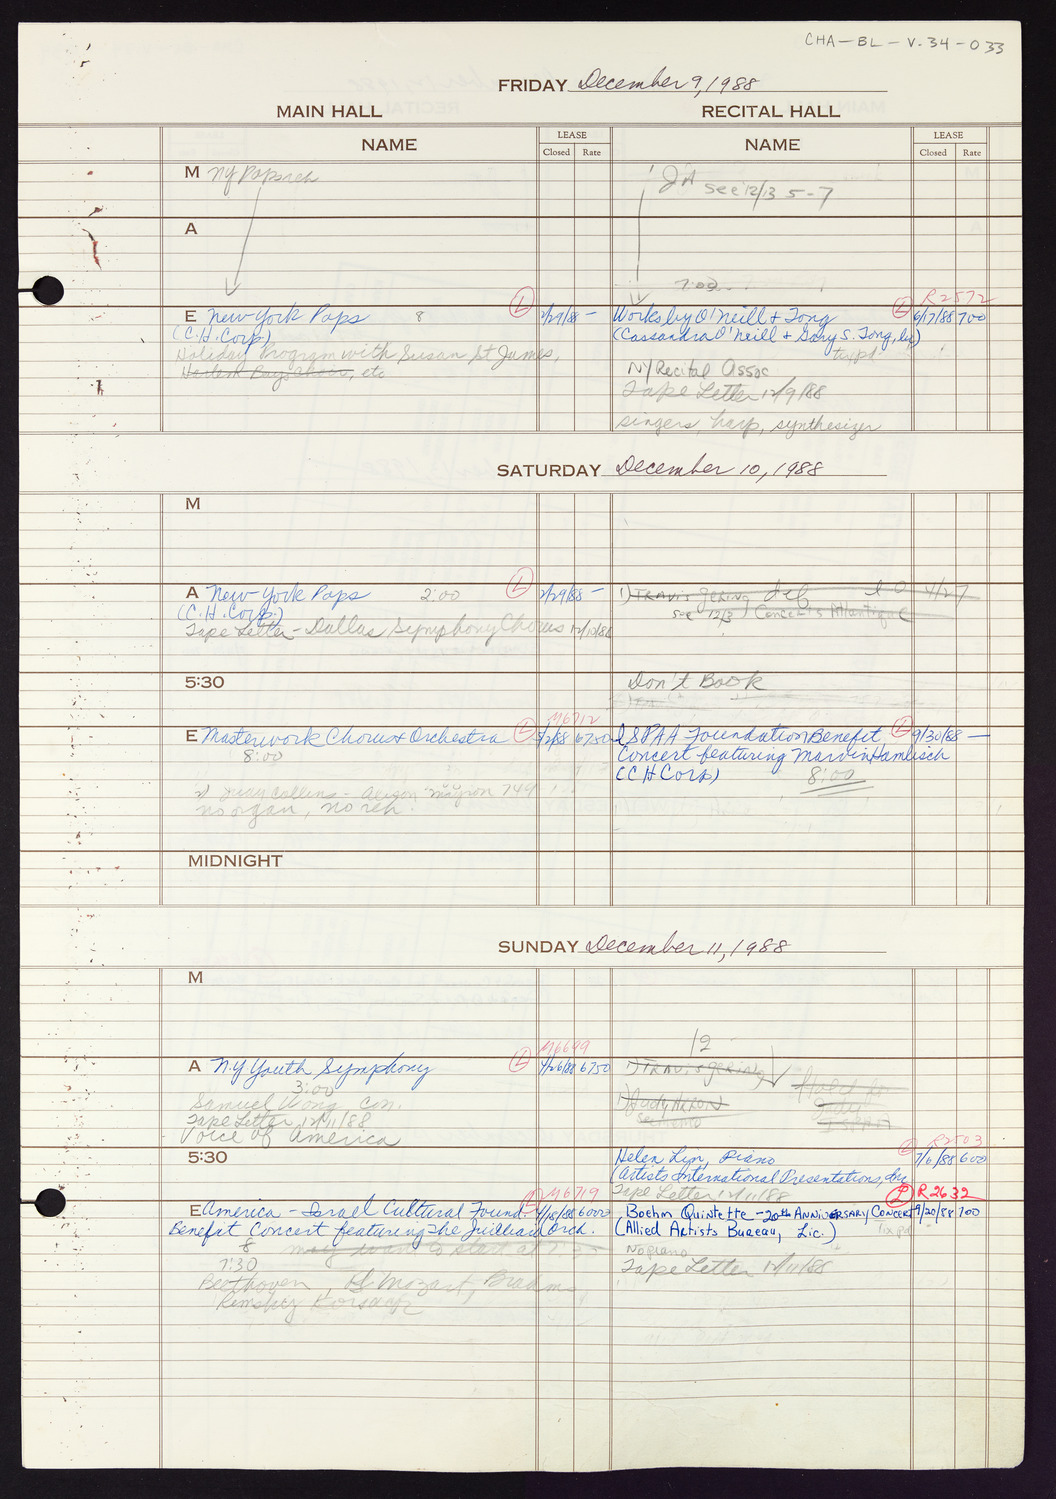 CHA-BL-V.34-033
FRIDAY December 9, 1988
MAIN HALL
RECITAL HALL
NAME
LEASE
Closed Rate
NAME
LEASE
Closed Rate
M NY Pops reh
JA see 12/13 5-7
A
7:00
R2572
E New York Pops 8 L 2/29/88 -
(C.H. Corp)
Holiday Program with Susan St James,
Harlem Boys Choir, etc
Works by O'Neill & Tong L 6/17/88 700
(Cassandra O'Neill & Gary S. Tong, by)
NY Recital Assoc
Tape Letter 12/9/88
singers, harp, synthesizer
SATURDAY December 10, 1988
M
A New York Pops 2:00 L 2/29/88 -
(C.H. Corp.)
Tape Letter - Dallas Symphony Chorus 12/10/88
1) TRAVIS GERING
see 12/3 Concerts Atlantique
5:30
Don't Book
M6712
E Masterwork Chorus & Orchestra L 5/2/88 6750
8:00
2) Judy Collins -
no organ, no reh.
ISPAA Foundation Benefit L 9/30/88 -
Concert featuring Marvin Hamlisch
(CH Corp)
8:00
MIDNIGHT
SUNDAY December 11, 1988
M
M6699
A N.Y Youth Symphony L 4/26/88 6750
3:00
Samuel Wong con.
Tape Letter 12/11/88
Voice of America
12
1) TRAVIS GERING
1) Judy ARRON
Hold for
Judy
5:30
L R2503
Helen Lin, Piano 7/6/88 600
(Artists International Presentations, Inc
Tape Letter 12/11/88
M6719
E America - Israel Cultural Found. 6000
Benefit Concert featuring The Juilliard Orch.
8 may want to start at 7:30
7:30
Beethoven, Mozart, Brahms,
Rimsky Korsakov
L R2632
Boehm Quintette - 20th ANNIVERSARY CONCERT 9/20/88 700
(Allied Artists Bureau, Lic.)
No piano
Tape Letter 12/11/88